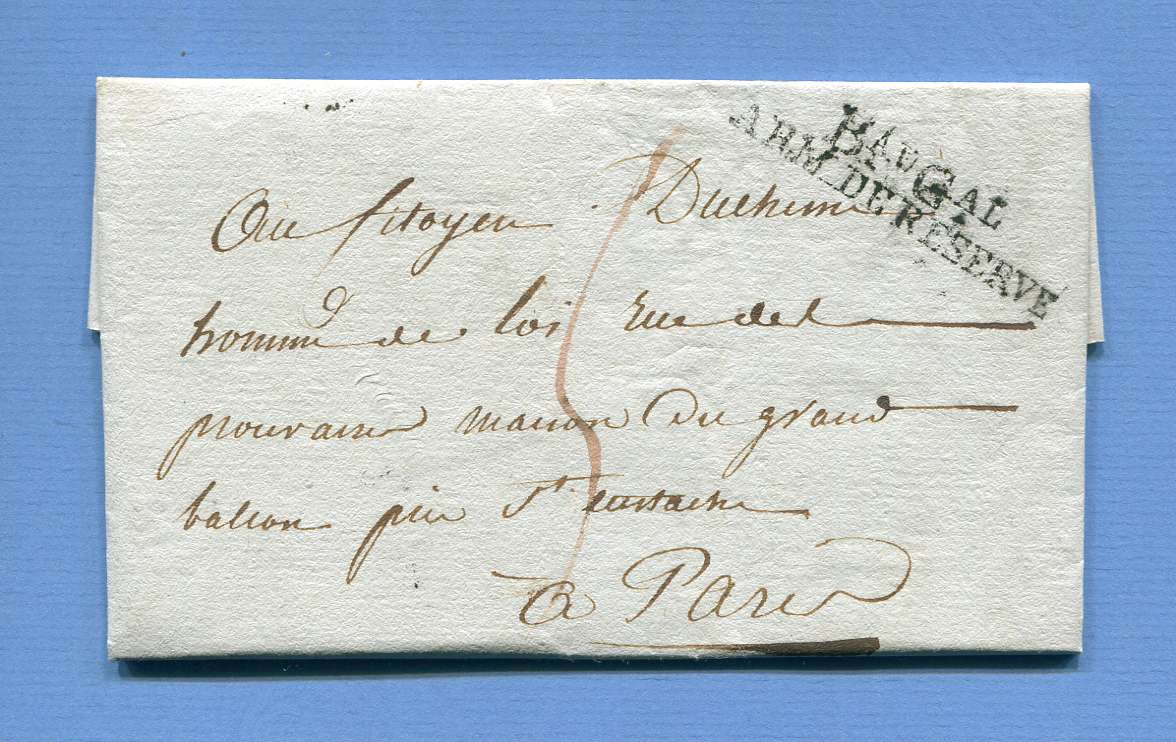 BAU GAL
ARM. DE RÉSERVE
Au Citoyen Duchesne
homme de loi rue de
maison du grand
balcon près St. eustache
a Paris